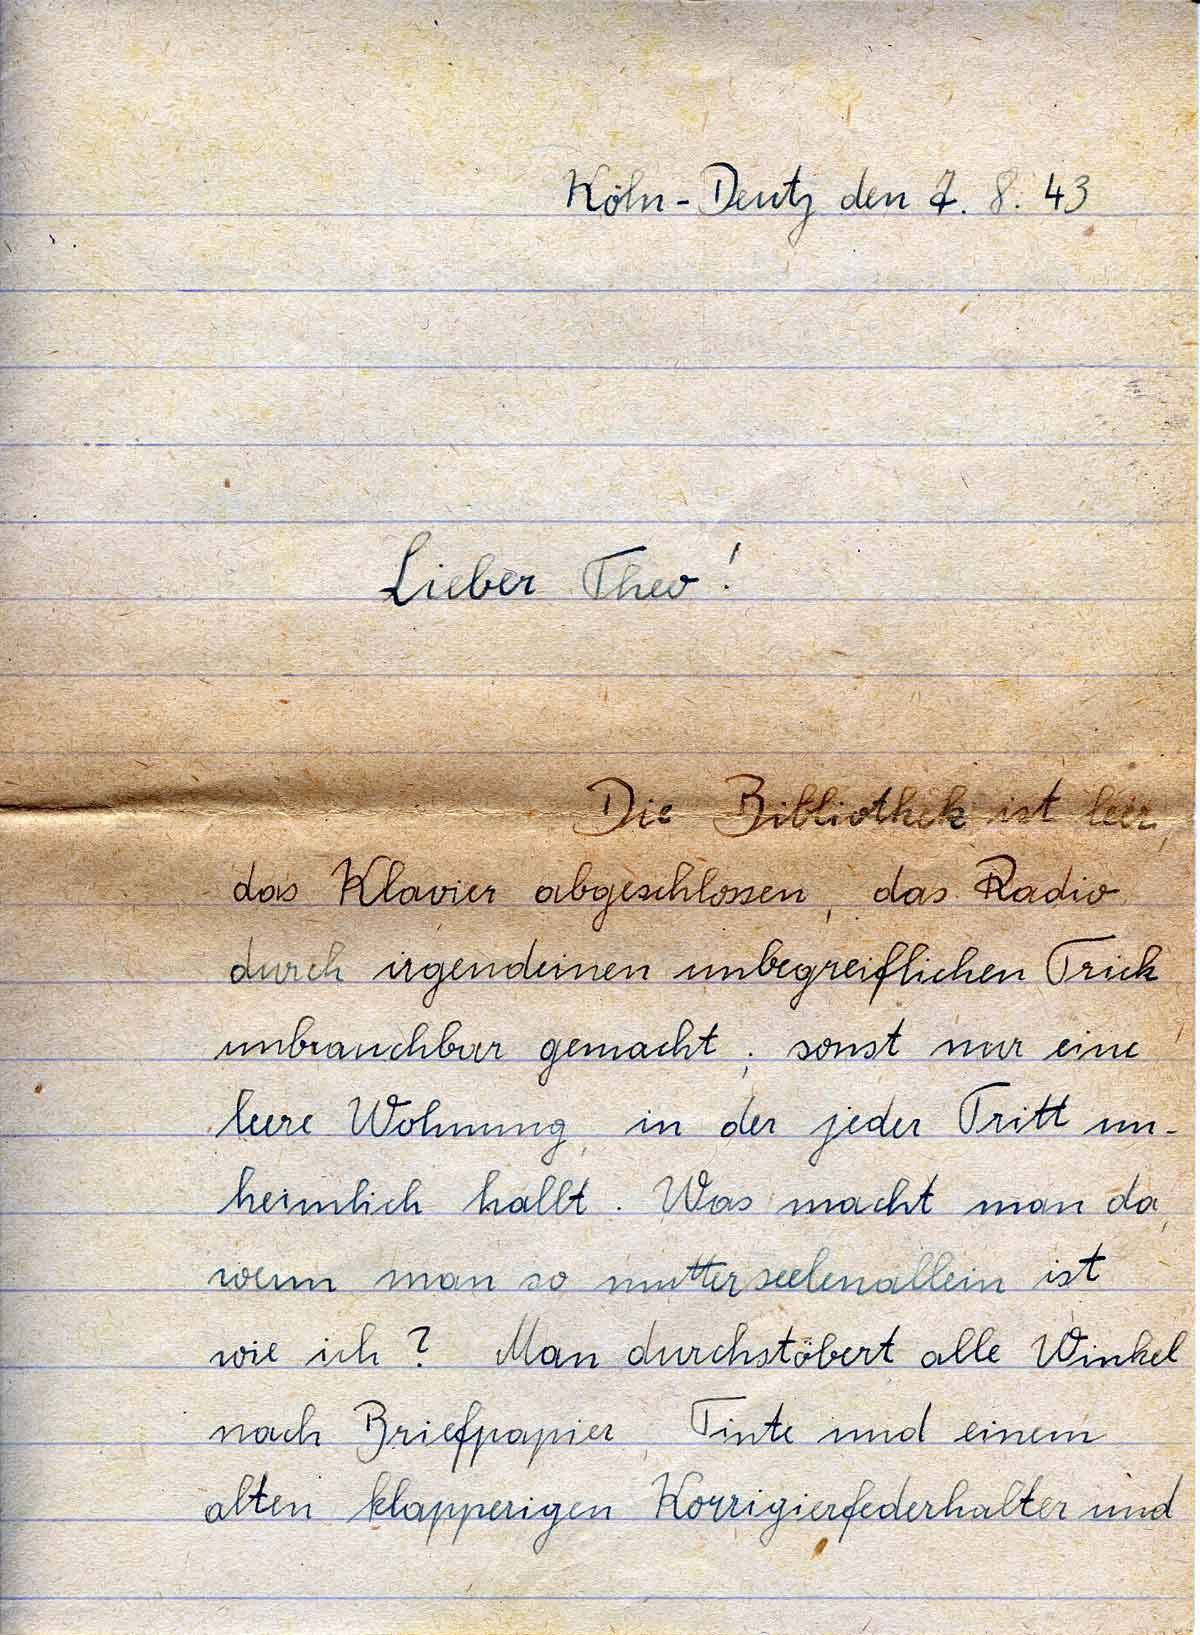 Köln-Deutz den 7. 8. 43
Lieber Theo!
Die Bibliothek ist leer,
das Klavier abgeschlossen, das Radio
durch irgendeinen unbegreiflichen Trick
unbrauchbar gemacht; sonst nur eine
leere Wohnung, in der jeder Tritt un-
heimlich hallt. Was macht man da,
wenn man so mutterseelenallein ist
wie ich? Man durchstöbert alle Winkel
nach Briefpapier Tinte und einem
alten klapperigen Korrigierfederhalter und